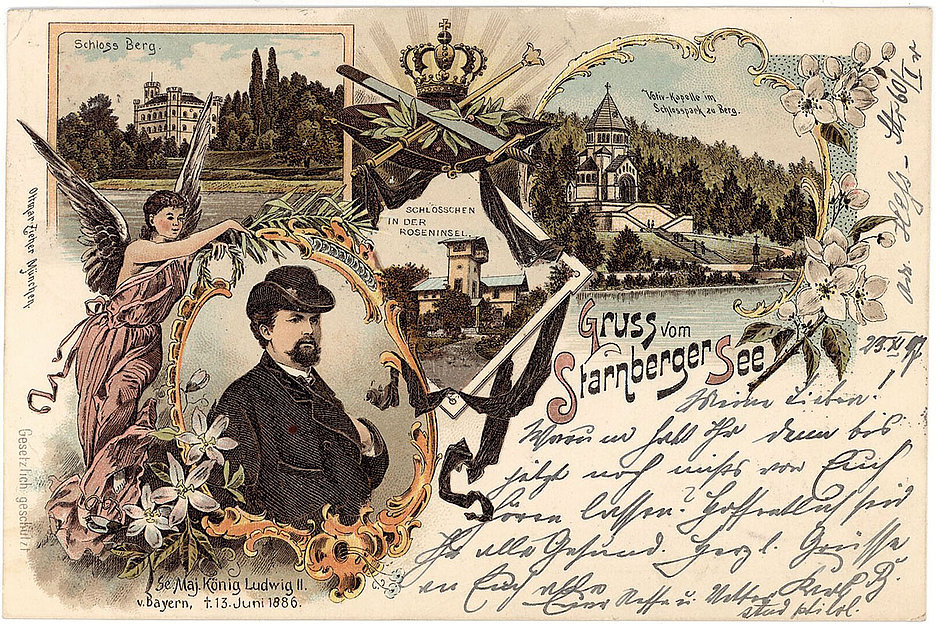 Schloss Berg.
Votiv-Kapelle im
Schlosspark zu Berg.
SCHLÖSSCHEN
IN DER
ROSENINSEL.
Ottmar Zieher München.
Gesetzlich geschützt
Gruss vom
Starnberger See
Se. Maj. König Ludwig II.
v. Bayern, †.13. Juni 1886.
Meine Lieben!
Warum habt Ihr denn bis
jetzt noch nichts von Euch
hören lassen? Hoffentlich seid
Ihr alle Gesund. Herzl. Grüsse
an Euch alle
Euer Neffe u. Vetter